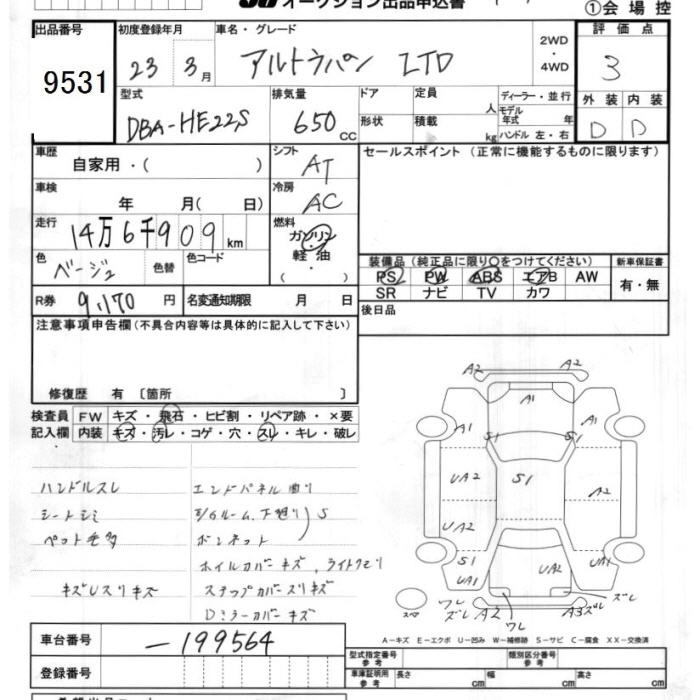 オークション出品申込書
①会場控
出品番号 9531
初度登録年月 23 3月
車名・グレード アルトラパン LTD
2WD
・
4WD
評価点 3
型式 DBA-HE22S
排気量 650 CC
ドア
形状
定員 人
積載 kg
ディーラー・並行
モデル
年式 年
ハンドル 左・右
外装 内装
D D
車歴 自家用・( )
シフト AT
セールスポイント(正常に機能するものに限ります)
車検 年 月( 日)
冷房 AC
走行 14万6千909km
燃料
ガソリン
軽油
( ・ )
色 ベージュ 色替 色コード
装備品(純正品に限り○をつけてください)
新車保証書
PS PW ABS エアB AW
SR ナビ TV カワ
有・無
R券 9,170 円 名変通知期限 月 日
後日品
注意事項申告欄(不具合内容等は具体的に記入して下さい)
修復歴 有 〔箇所 〕
検査員 FW キズ・飛石・ヒビ割・リペア跡・×要
記入欄 内装 キズ・汚レ・コゲ・穴・スレ・キレ・破レ
ハンドルスレ エンドパネル曲り
シートシミ S/Gルーム、下廻り S
ペット毛多 ボンネット
ホイルカバーキズ、ライトクモリ
キズUスリキズ ステップカバースリキズ
Dミラーカバーキズ
A2 A2
A1
A1 A1
S1 S1
UA2 S1 A2
UA2
S1 UA2 S1
UA1 UA1
スペア
ワレ ズレ
ズレ A2 A3 ズレ
ワレ
A-キズ E-エクボ U-凹み W-補修跡 S-サビ C-腐食 XX-交換済
車台番号 -199564
型式指定番号
参考
類別区分番号
参考
登録番号
車庫証明用
参考
長さ cm 幅 cm 高さ cm